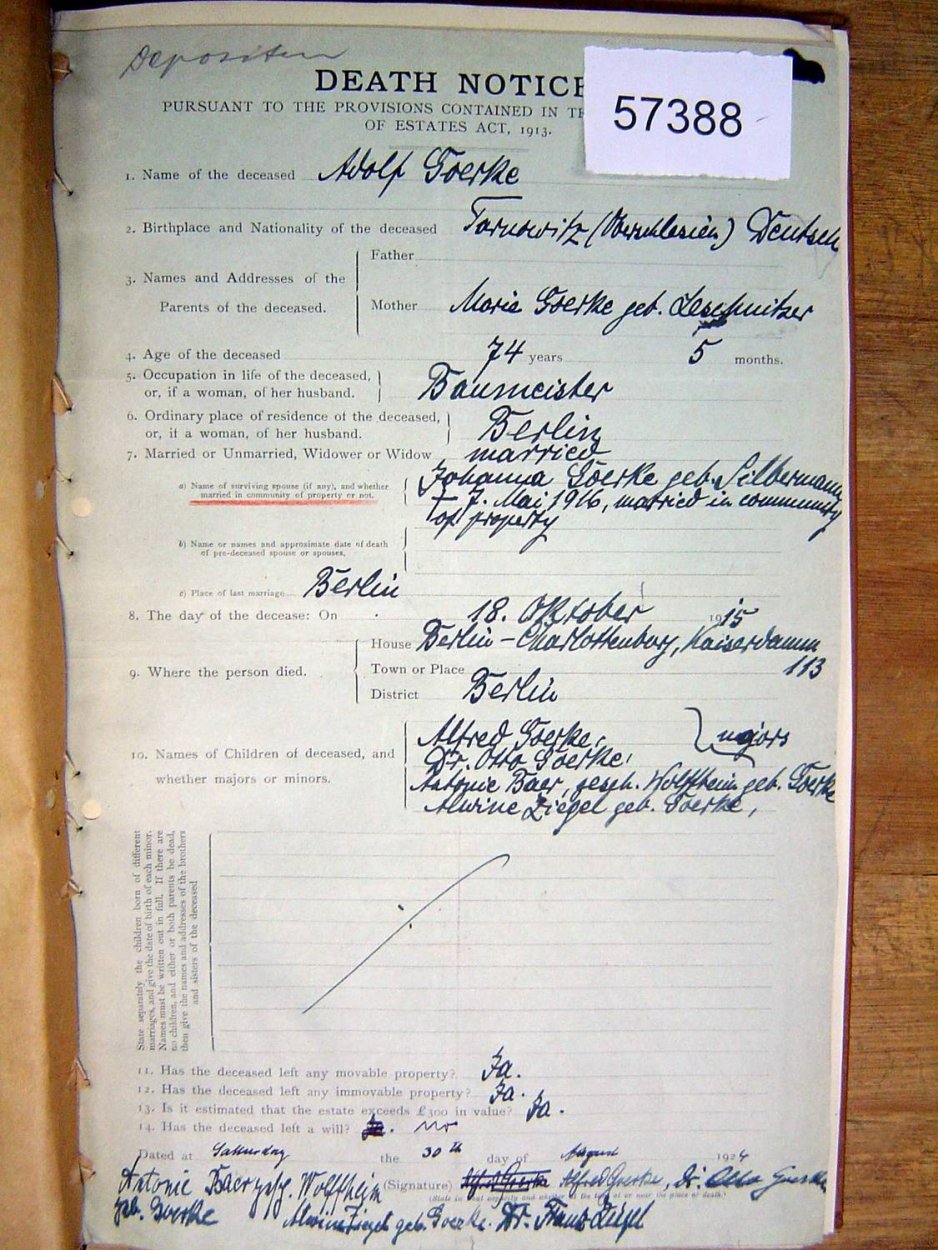 Depositen
DEATH NOTICE
57388
PURSUANT TO THE PROVISIONS CONTAINED IN
OF ESTATES ACT, 1913.
1. Name of the deceased Adolf Goerke
2. Birthplace and Nationality of the deceased Tarnowitz (Oberschlesien) Deutsch
3. Names and Addresses of the Parents of the deceased.
Father
Mother Marie Goerke geb. Leschnitzer
4. Age of the deceased 74 years 5 months.
5. Occupation in life of the deceased, or, if a woman, of her husband. Baumeister
6. Ordinary place of residence of the deceased, or, if a woman, of her husband. Berlin
7. Married or Unmarried, Widower or Widow married
a) Name of surviving spouse (if any), and whether married in community of property or not.
Johanna Goerke geb. Silbermann
† 7. Mai 1916, married in community
of property
b) Name or names and approximate date of death of pre-deceased spouse or spouses,
c) Place of last marriage Berlin
8. The day of the decease: On 18. Oktober 1915
9. Where the person died.
House Berlin-Charlottenburg, Kaiserdamm
113
Town or Place
District Berlin
10. Names of Children of deceased, and whether majors or minors.
Alfred Goerke, majors
Dr. Otto Goerke,
Antonie Baer, gesch. Wolffheim geb. Goerke
Alwine Ziegel geb. Goerke,
State separately the children born of different
marriages, and give the date of birth of each minor.
Names must be written out in full. If there are
no children, and either or both parents be dead,
then give the names and addresses of the brothers
and sisters of the deceased
11. Has the deceased left any movable property? Ja.
12. Has the deceased left any immovable property? Ja.
13. Is it estimated that the estate exceeds £300 in value? Ja.
14. Has the deceased left a will? no
Dated at Saturday the 30th day of August 1924
(Signature) Alfred Goerke, Dr. Otto Goerke
Antonie Baer gesch. Wolffheim
geb. Goerke Alwine Ziegel geb. Goerke. Dr. Franz Ziegel